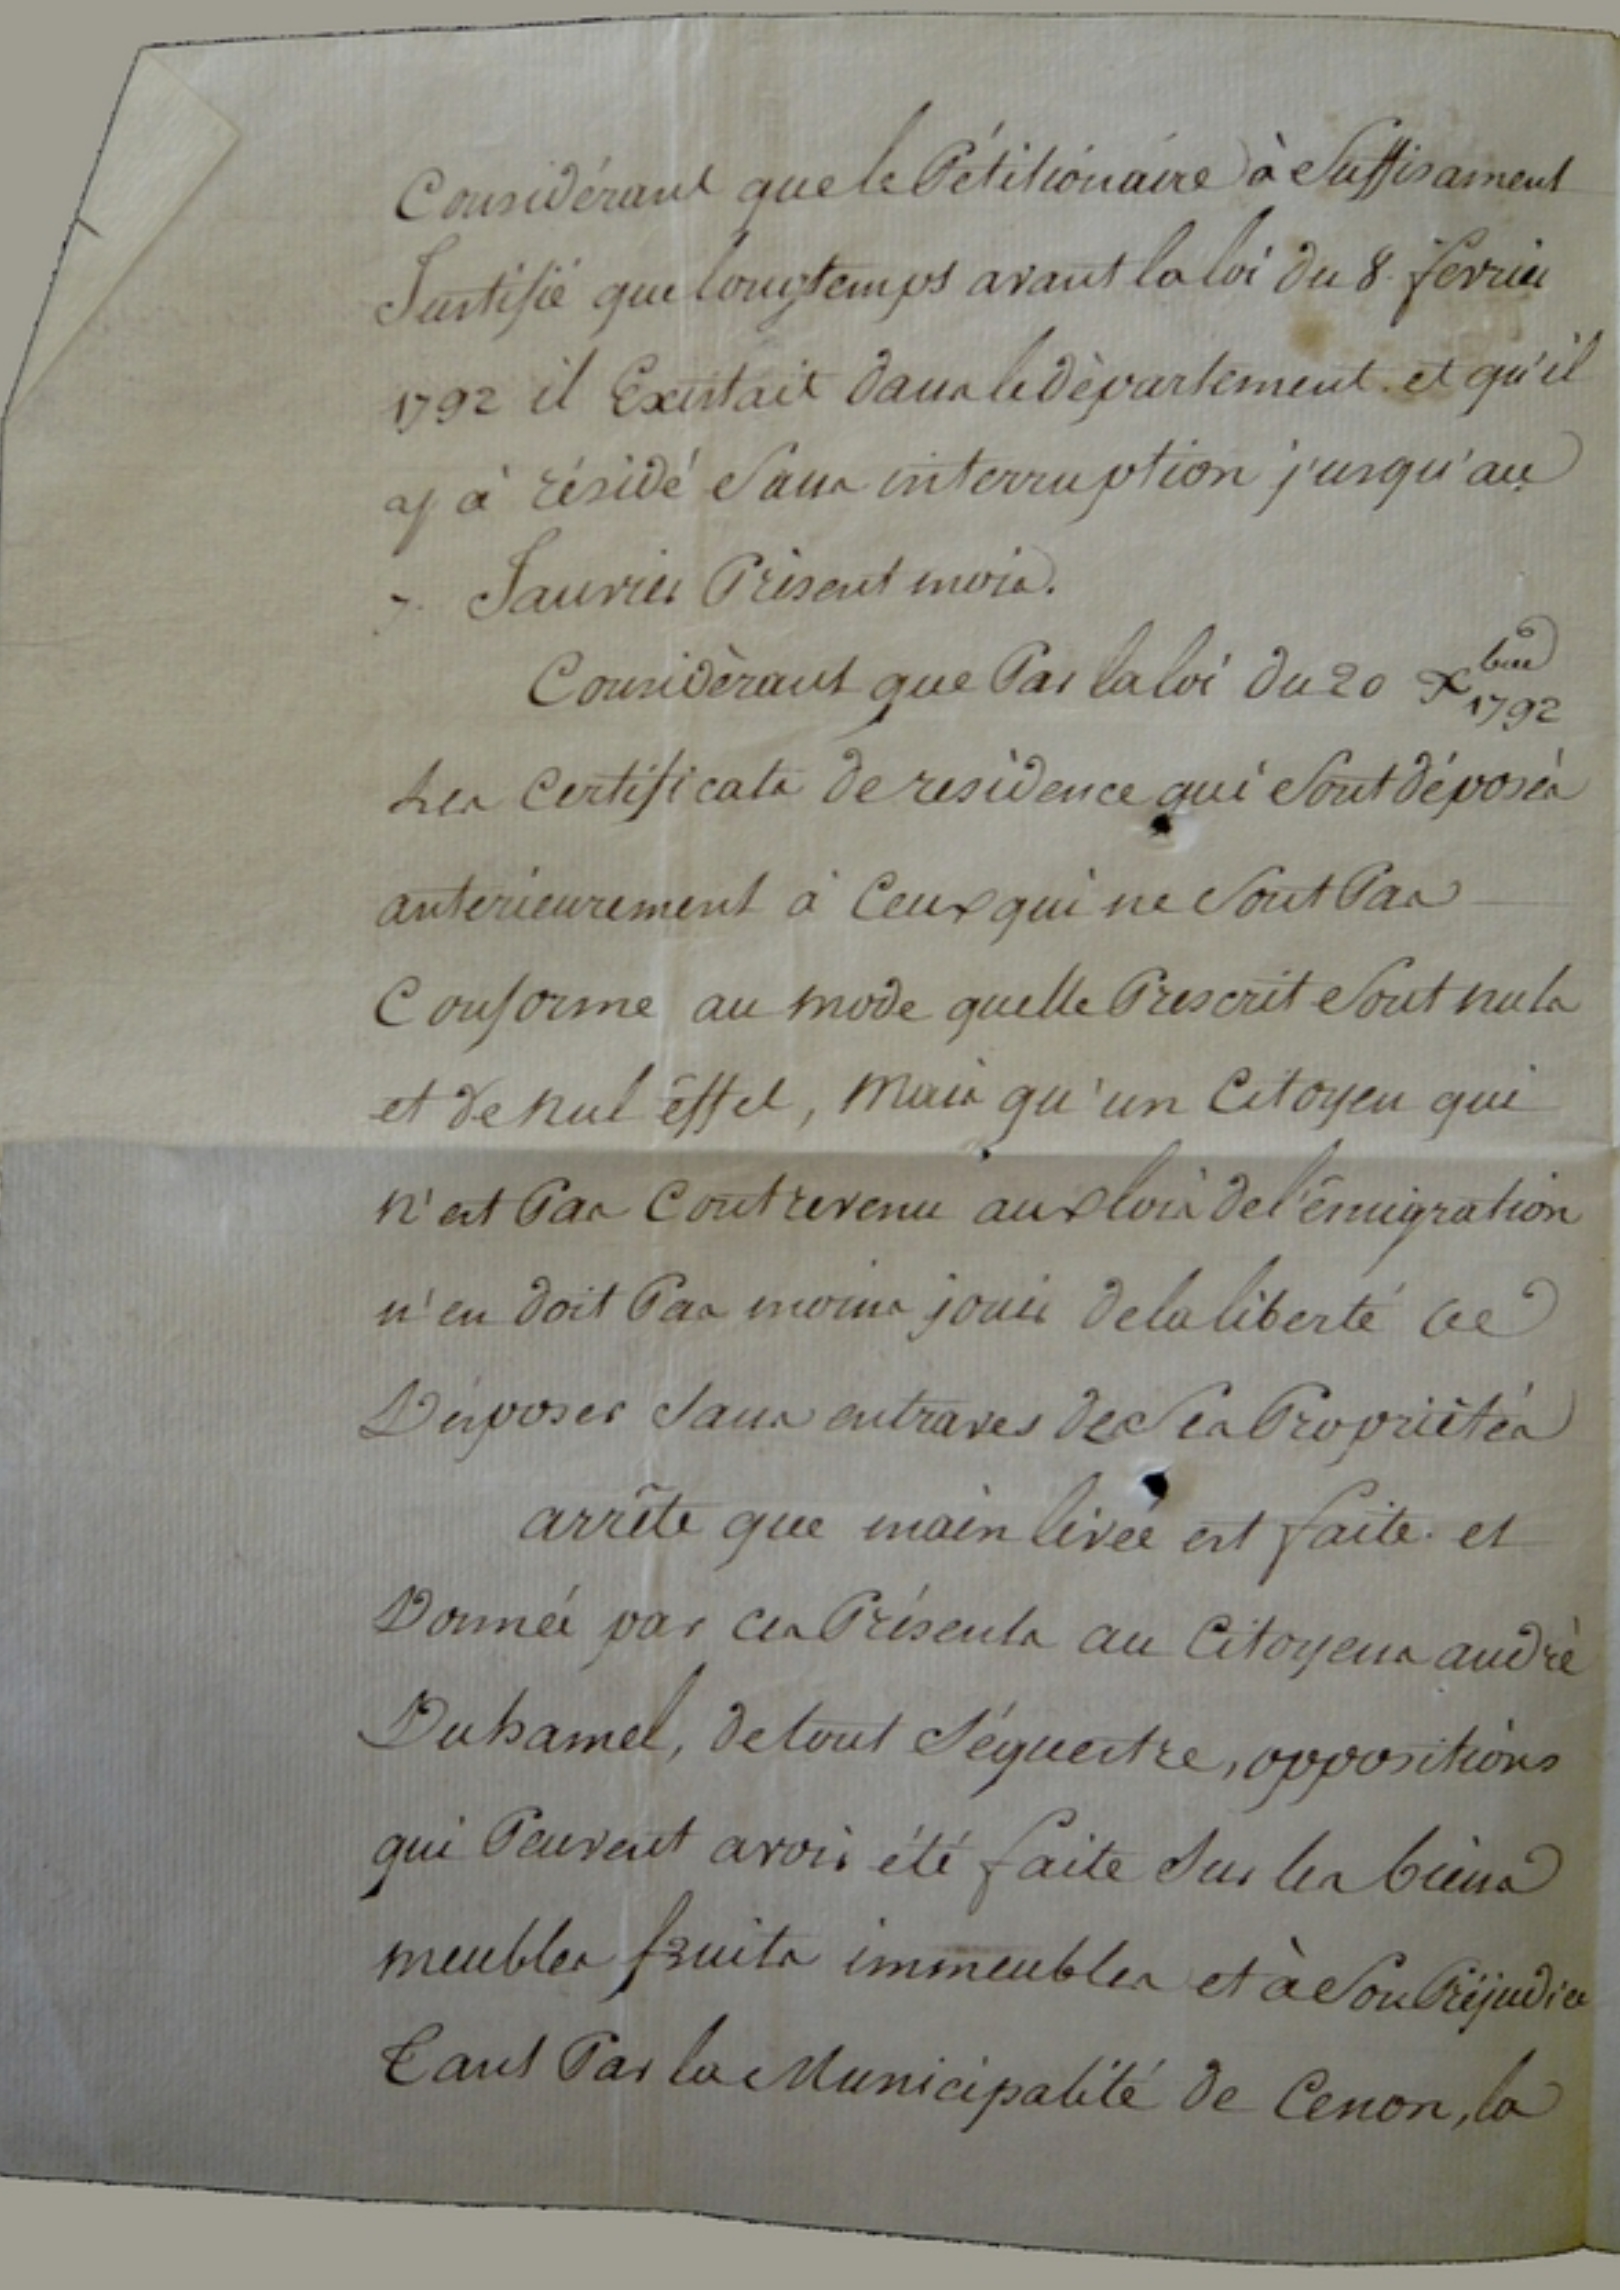 Considérant que le Pétitionaire à Suffisament
Justifié que longtemps avant la loi du 8. fevrier
1792 il Existait dans le département et qu'il
y à résidé Sans interruption jusqu'au
7. Janvier Présent mois.
Considèrant que Par la loi du 20 Xbre 1792
Les Certificats de residence qui Sont déposés
anterieurement à Ceux qui ne Sont Pas
Conforme au mode quelle Prescrit Sont nuls
et de nul éffet, Mais qu'un Citoyen qui
n'est Pas Contrevenu aux lois de l'émigration
n'en doit Pas moins jouir de la liberté de
Disposer Sans entraves de Ses Propriétés
arrête que main livée est faite. et
Donnée par ces Présents au Citoyens andré
Duhamel, de tout Séquestre, oppositions
qui Peuvent avoir été faite Sur les biens
meubles fruits immeubles et à Son Préjudice
Tant Par la Municipalité de Cenon, la